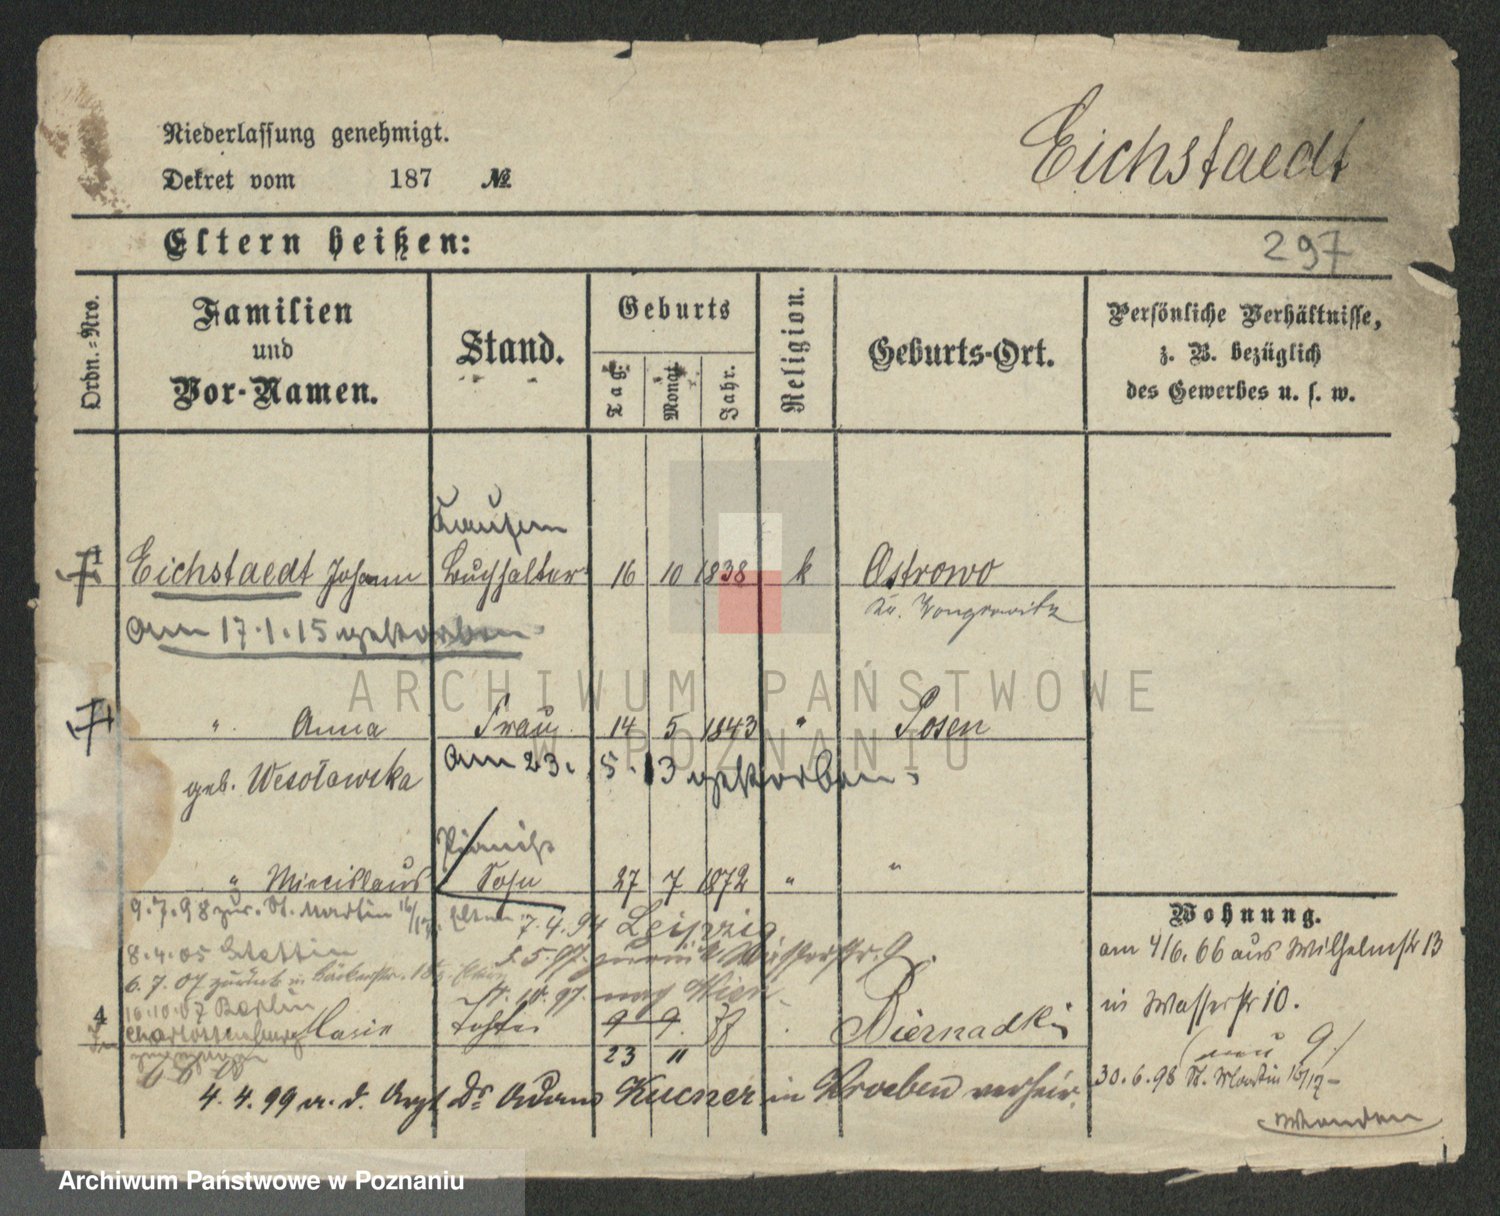 Niederlassung genehmigt.
Dekret vom 187 №
Eichstaedt
Eltern heißen:
297
Ordn.-Nro.
Familien
und
Vor-Namen.
Stand.
Geburts
Tag.
Monat
Jahr.
Religion.
Geburts-Ort.
Persönliche Verhältnisse,
z. B. bezüglich
des Gewerbes u. s. w.
1 Eichstaedt Johann Buchhalter 16 10 1838 k Ostrowo
Kr. Wongrowitz
Am 17.1.15 gestorben
" Anna Frau 14 5 1843 " Posen
geb. Wesołowska
Am 23. 5. 13 gestorben.
Pianist
" Miecislaus Sohn 27 7 1872 " "
9.7.98 zur. St. Martin 16/17. Eltern 7.4.94 Leipzig
8.4.05 Stettin
zurück Wasserstr. 9.
6.7.07 zurück
nach Wien
16.10.07 Berlin
Charlottenburg
4 Marie Tochter 9 9. 77 Biernadki
23 11
4.4.99 m. d. Arzt Dr Adam Kucner in Kroeben verheir.
Wohnung.
am 4/6. 66 aus Wilhelmstr 13
in Wasserstr 10.
(neu 9)
30.6.98 St. Martin 16/17
ARCHIWUM PAŃSTWOWE
W POZNANIU
Archiwum Państwowe w Poznaniu